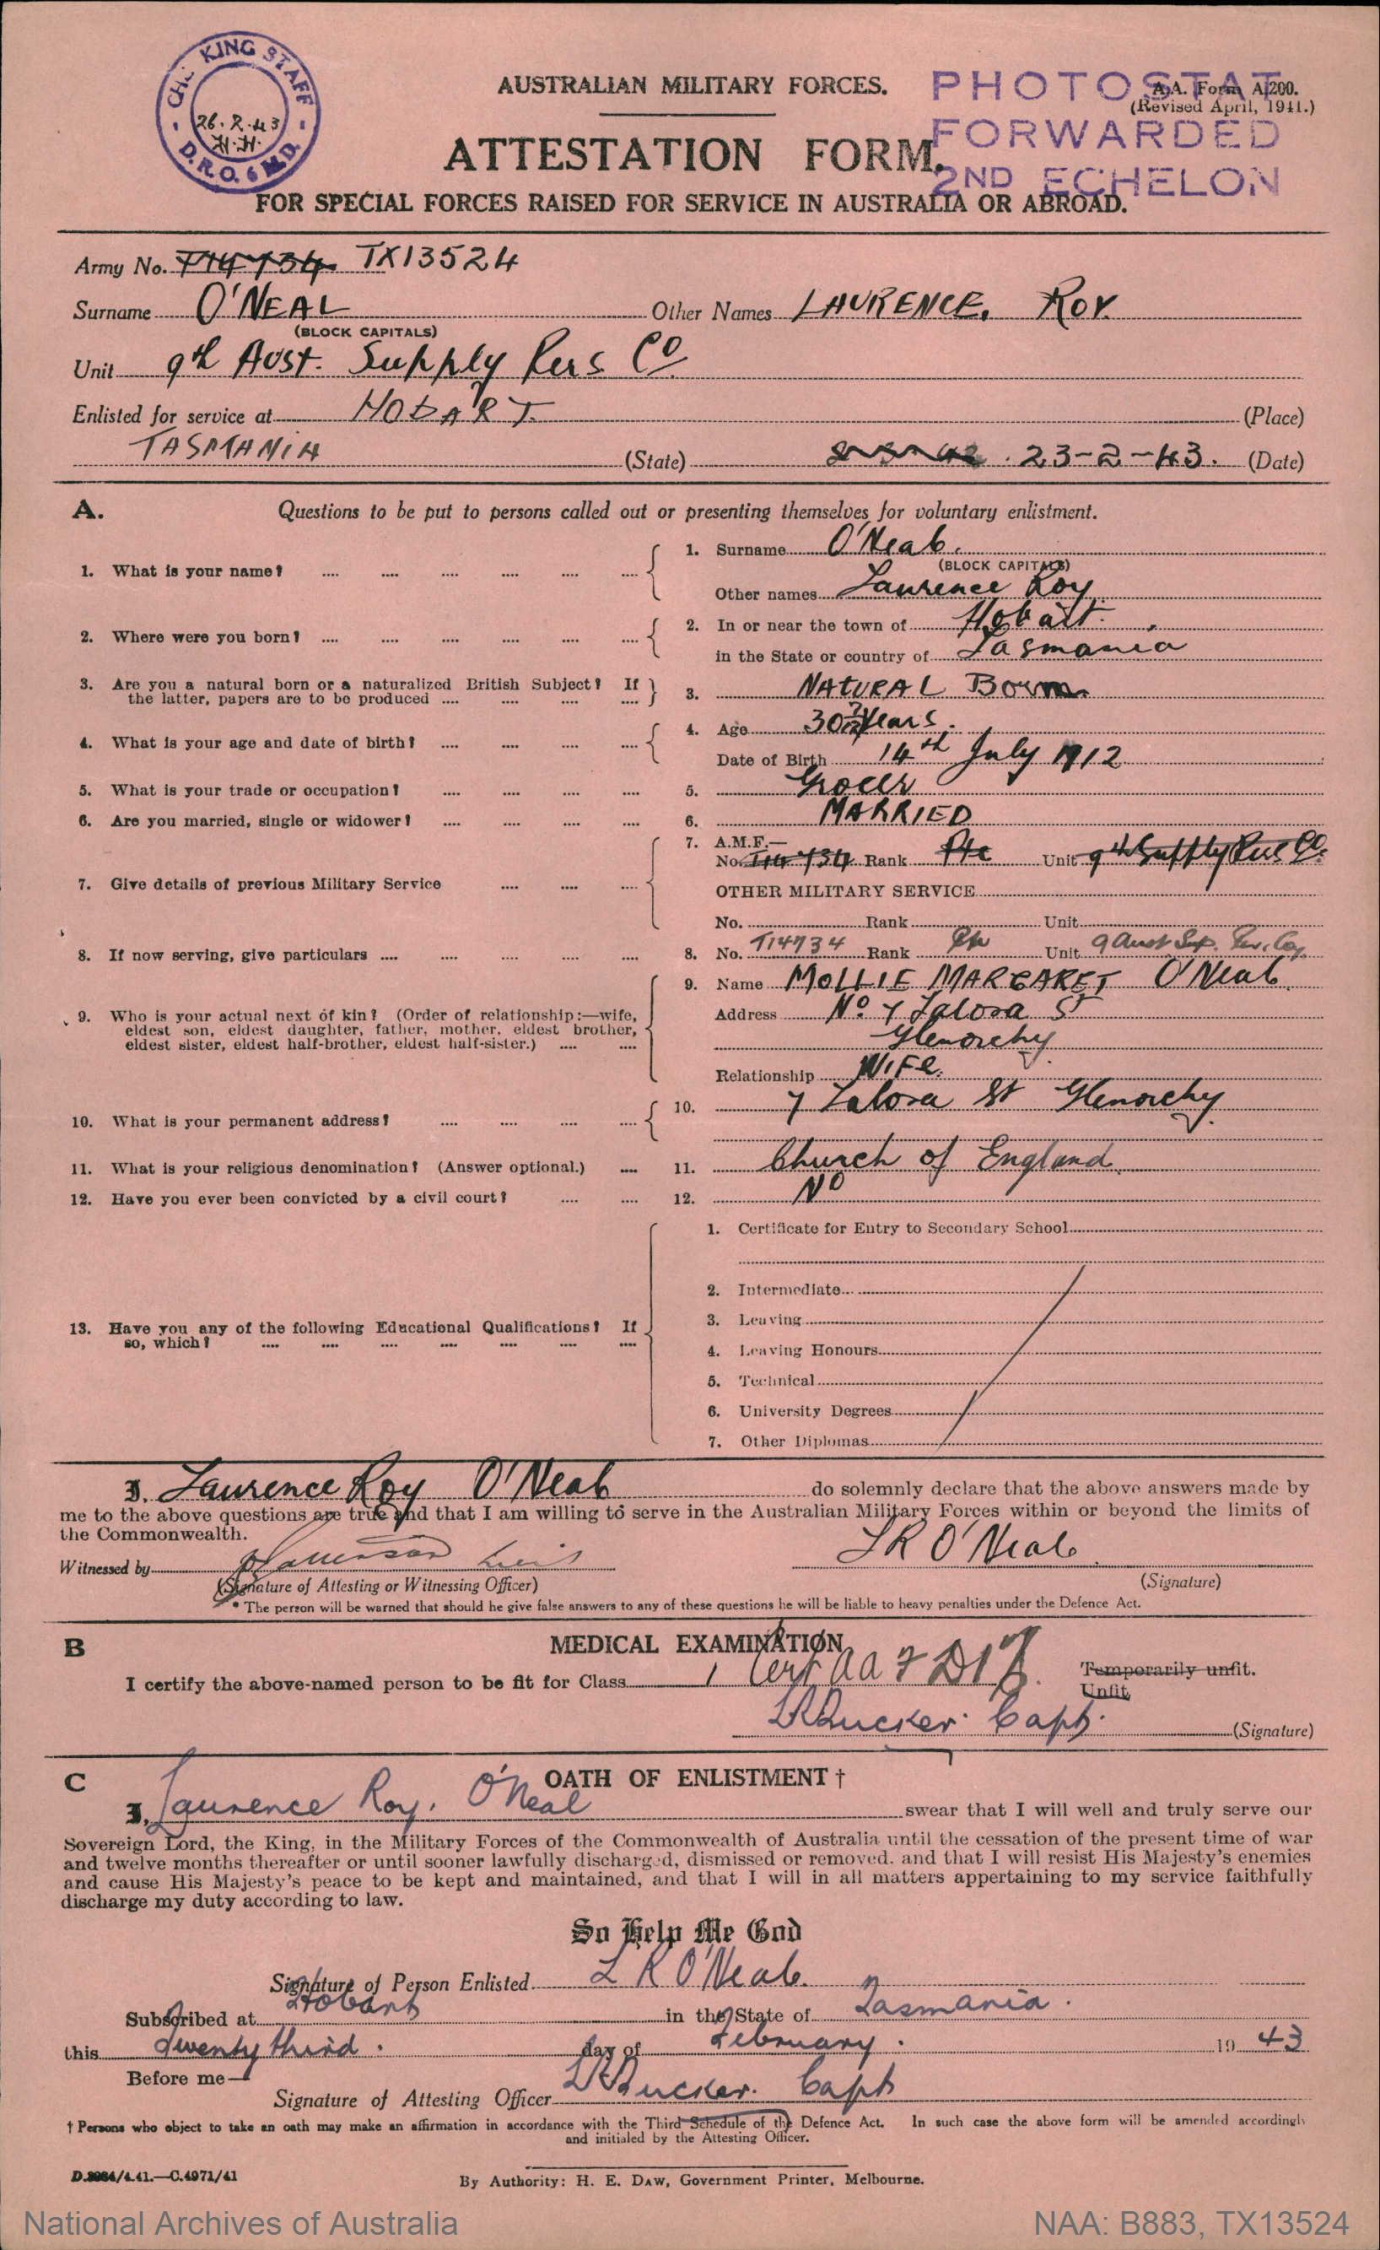 CHL KING STAFF
26.2.43
D.R.O. 6 M.D.
AUSTRALIAN MILITARY FORCES.
PHOTOSTAT
FORWARDED
2ND ECHELON
A.A. Form A.200.
(Revised April, 1941.)
ATTESTATION FORM.
FOR SPECIAL FORCES RAISED FOR SERVICE IN AUSTRALIA OR ABROAD.
Army No. T14734 TX13524
Surname O'NEAL Other Names LAURENCE. ROY.
(BLOCK CAPITALS)
Unit 9th Aust. Supply Pers Co
Enlisted for service at HOBART (Place)
TASMANIA (State) 23-2-43. (Date)
A. Questions to be put to persons called out or presenting themselves for voluntary enlistment.
1. What is your name? 1. Surname O'Neal.
(BLOCK CAPITALS)
Other names Laurence Roy.
2. Where were you born? 2. In or near the town of Hobart.
in the State or country of Tasmania
3. Are you a natural born or a naturalized British Subject? If
the latter, papers are to be produced 3. NATURAL Born
4. What is your age and date of birth? 4. Age 30 7/12 Years.
Date of Birth 14th July 1912
5. What is your trade or occupation? 5. Grocer
6. Are you married, single or widower? 6. MARRIED
7. Give details of previous Military Service 7. A.M.F.—
No. T14734 Rank Pte Unit 9th Supply Pers Co.
OTHER MILITARY SERVICE
No. Rank Unit
8. If now serving, give particulars 8. No. T14734 Rank Pte Unit 9 Aust Sup. Per. Coy.
9. Who is your actual next of kin? (Order of relationship:—wife,
eldest son, eldest daughter, father, mother, eldest brother,
eldest sister, eldest half-brother, eldest half-sister.)
9. Name MOLLIE MARGARET O'Neal.
Address No 7 Lalora St
Glenorchy
Relationship WIFE.
10. What is your permanent address? 10. 7 Lalora St Glenorchy
11. What is your religious denomination? (Answer optional.) 11. Church of England
12. Have you ever been convicted by a civil court? 12. No
13. Have you any of the following Educational Qualifications? If
so, which?
1. Certificate for Entry to Secondary School
2. Intermediate
3. Leaving
4. Leaving Honours
5. Technical
6. University Degrees
7. Other Diplomas
I, Laurence Roy O'Neal do solemnly declare that the above answers made by
me to the above questions are true and that I am willing to serve in the Australian Military Forces within or beyond the limits of
the Commonwealth.
L R O'Neal
Witnessed by
(Signature of Attesting or Witnessing Officer) (Signature)
* The person will be warned that should he give false answers to any of these questions he will be liable to heavy penalties under the Defence Act.
B MEDICAL EXAMINATION
I certify the above-named person to be fit for Class 1 Temporarily unfit.
Unfit
Capt. (Signature)
C OATH OF ENLISTMENT †
I, Laurence Roy. O'Neal swear that I will well and truly serve our
Sovereign Lord, the King, in the Military Forces of the Commonwealth of Australia until the cessation of the present time of war
and twelve months thereafter or until sooner lawfully discharged, dismissed or removed, and that I will resist His Majesty's enemies
and cause His Majesty's peace to be kept and maintained, and that I will in all matters appertaining to my service faithfully
discharge my duty according to law.
So Help Me God
Signature of Person Enlisted L R O'Neal.
Subscribed at Hobart in the State of Tasmania.
this Twenty third. day of February. 19 43
Before me—
Signature of Attesting Officer Capt
† Persons who object to take an oath may make an affirmation in accordance with the Third Schedule of the Defence Act. In such case the above form will be amended accordingly
and initialed by the Attesting Officer.
D.3984/4.41.—C.4971/41
By Authority: H. E. Daw, Government Printer, Melbourne.
National Archives of Australia
NAA: B883, TX13524